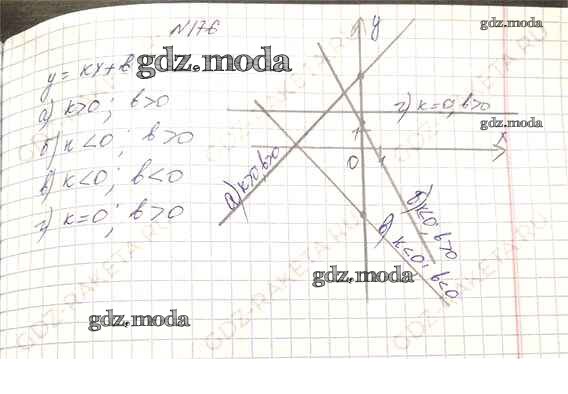 №176
y = kx + b
gdz.moda
а) k>0; b>0
б) k<0; b>0
в) k<0; b<0
г) k=0; b>0
y
gdz.moda
г) k=0, b>0
gdz.moda
x
1
0
1
а) k>0, b>0
б) k<0, b>0
в) k<0; b<0
gdz.moda
gdz.moda
GDZ-RAKETA.RU
GDZ-RAKETA.RU
GDZ-RAKETA.RU
GDZ-RAKETA.RU